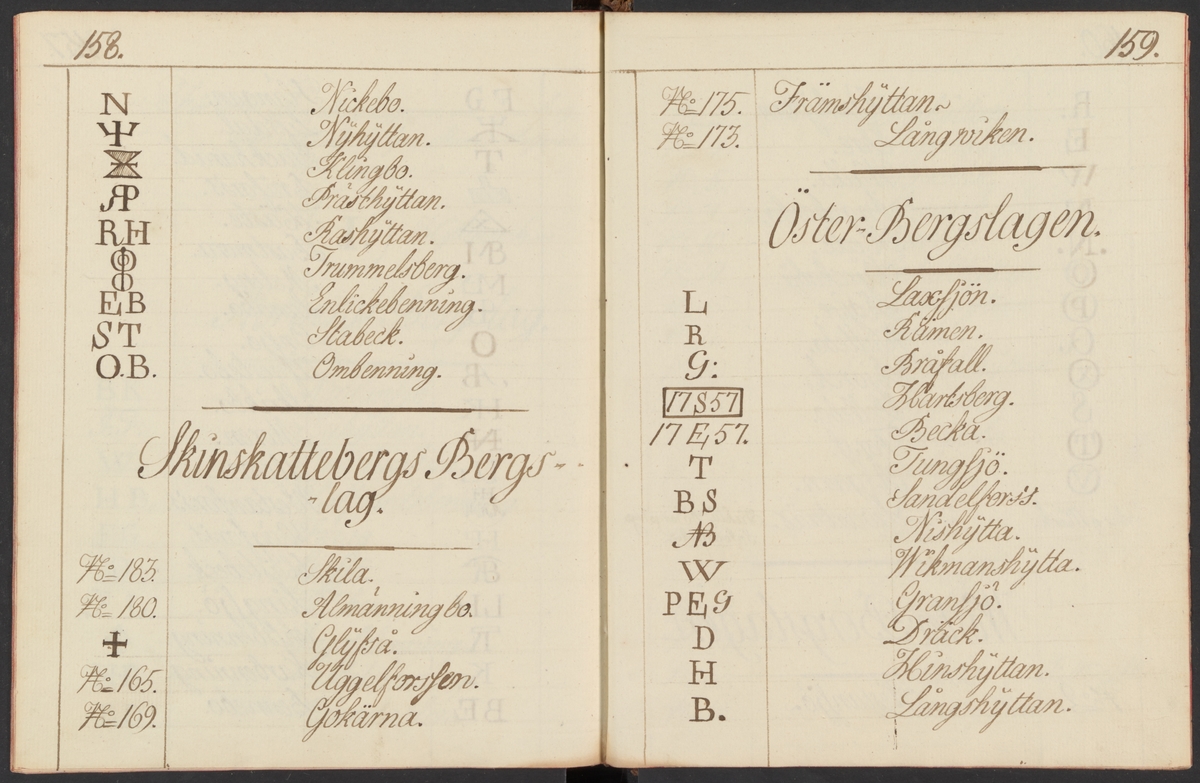 158.
N Nickebo.
Ψ Nÿhÿttan.
Klingbo.
Prästhÿttan.
RH Rashÿttan.
Trummelsberg.
EB Enlickebenning.
ST Stabeck.
O.B. Ombenning.
Skinskattebergs Bergs-
-lag.
No 183. Skila.
No 180. Almänningbo.
+ Glÿfså.
No 165. Uggelforssen.
No 169. Gokärna.
159.
No 175. Främshÿttan
No 173. Långwiken.
Öster-Bergslagen.
L Laxsjön.
R Råmen.
G: Bråfall.
17S57 Hartsberg.
17E57. Becka.
T Tungsjö.
BS Sandelforss.
AB Nishÿtta.
W Wikmanshÿtta.
PEG Gransjö.
D Dräck.
H Hinshÿttan.
B. Långshÿttan.